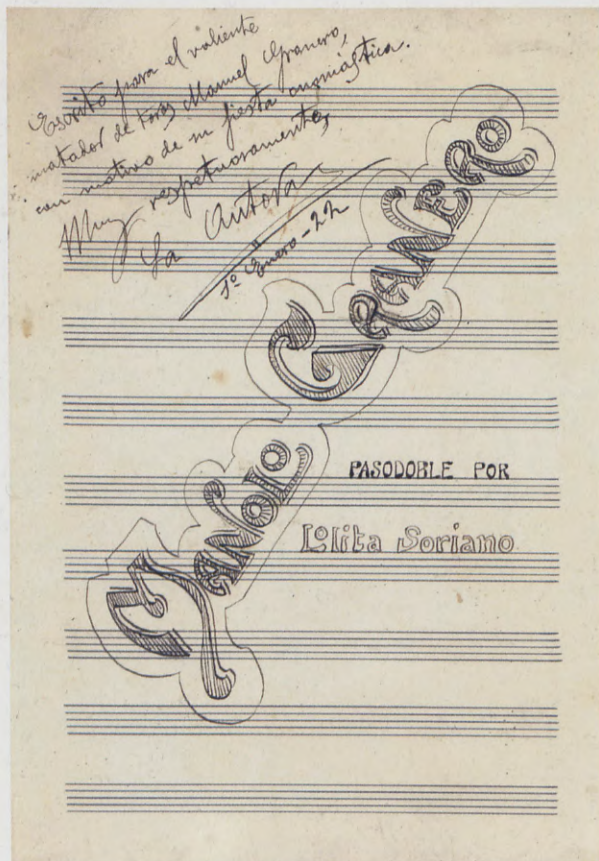 Escrito para el valiente
matador de toros Manuel Granero,
con motivo de su fiesta onomástica.
Muy respetuosamente,
La Autora
1º Enero - 22
MANOLO GRANERO
PASODOBLE POR
Lolita Soriano